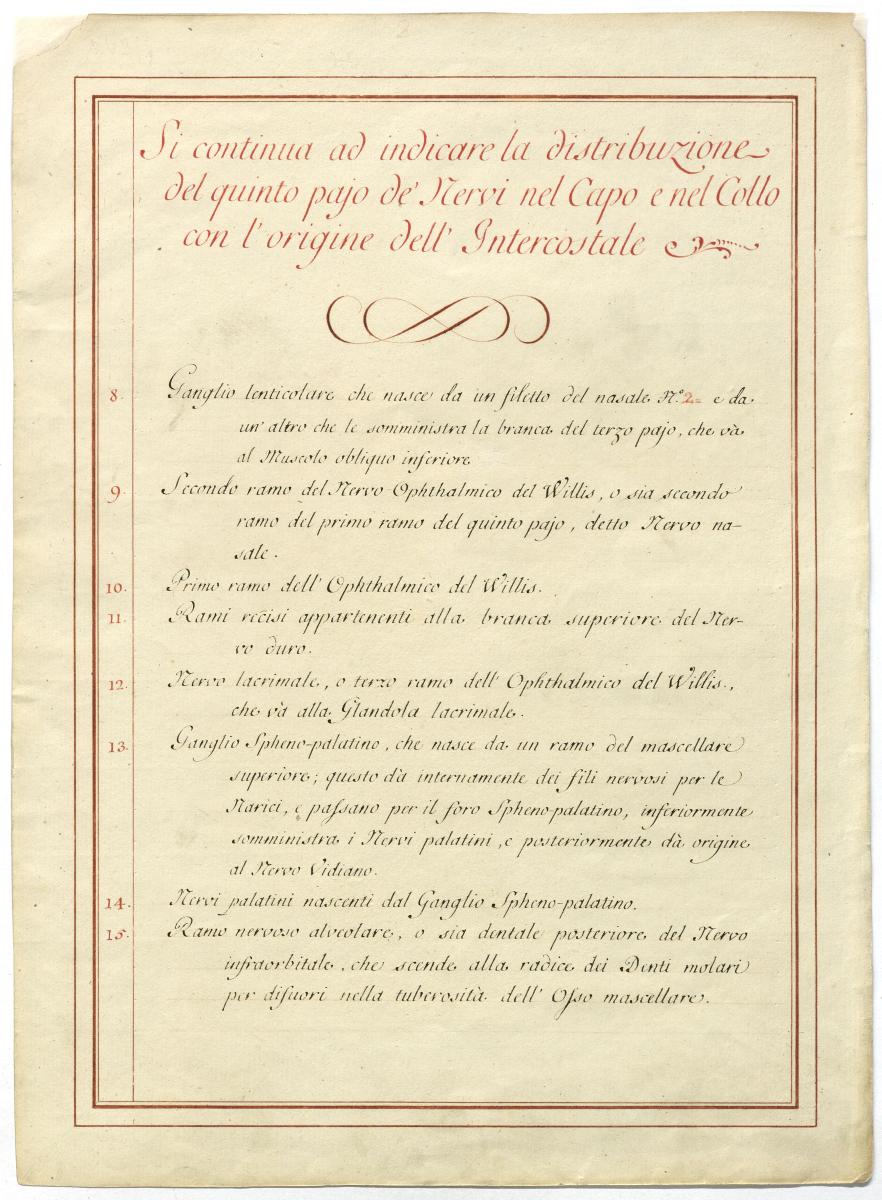 Si continua ad indicare la distribuzione
del quinto pajo de' Nervi nel Capo e nel Collo
con l'origine dell' Intercostale
8. Ganglio lenticolare che nasce da un filetto del nasale N.º 2= e da
un' altro che le somministra la branca del terzo pajo, che và
al Muscolo obliquo inferiore
9. Secondo ramo del Nervo Ophthalmico del Willis, o sia secondo
ramo del primo ramo del quinto pajo, detto Nervo na-
sale.
10. Primo ramo dell' Ophthalmico del Willis.
11. Rami recisi appartenenti alla branca superiore del Ner-
vo duro.
12. Nervo lacrimale, o terzo ramo dell' Ophthalmico del Willis.,
che và alla Glandola lacrimale.
13. Ganglio Spheno-palatino, che nasce da un ramo del mascellare
superiore; questo dà internamente dei fili nervosi per le
Narici, e paſsano per il foro Spheno-palatino, inferiormente
somministra i Nervi palatini, e posteriormente dà origine
al Nervo Vidiano.
14. Nervi palatini nascenti dal Ganglio Spheno-palatino.
15. Ramo nervoso alveolare, o sia dentale posteriore del Nervo
infraorbitale, che scende alla radice dei Denti molari
per difuori nella tuberosità dell' Oſso mascellare.